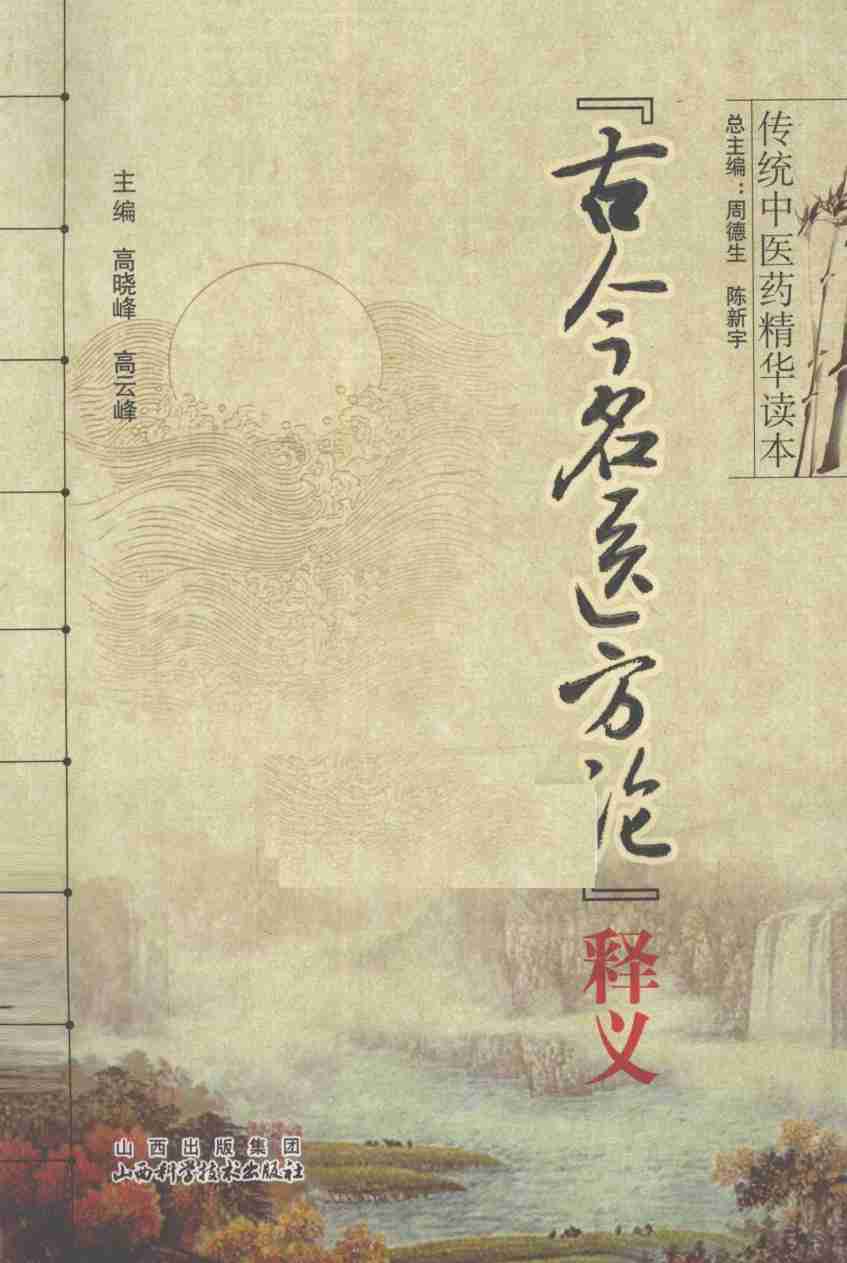 传统中医药精华读本
总主编：周德生 陈新宇
『古今名医方论』释义
主编 高晓峰 高云峰
山西出版集团
山西科学技术出版社